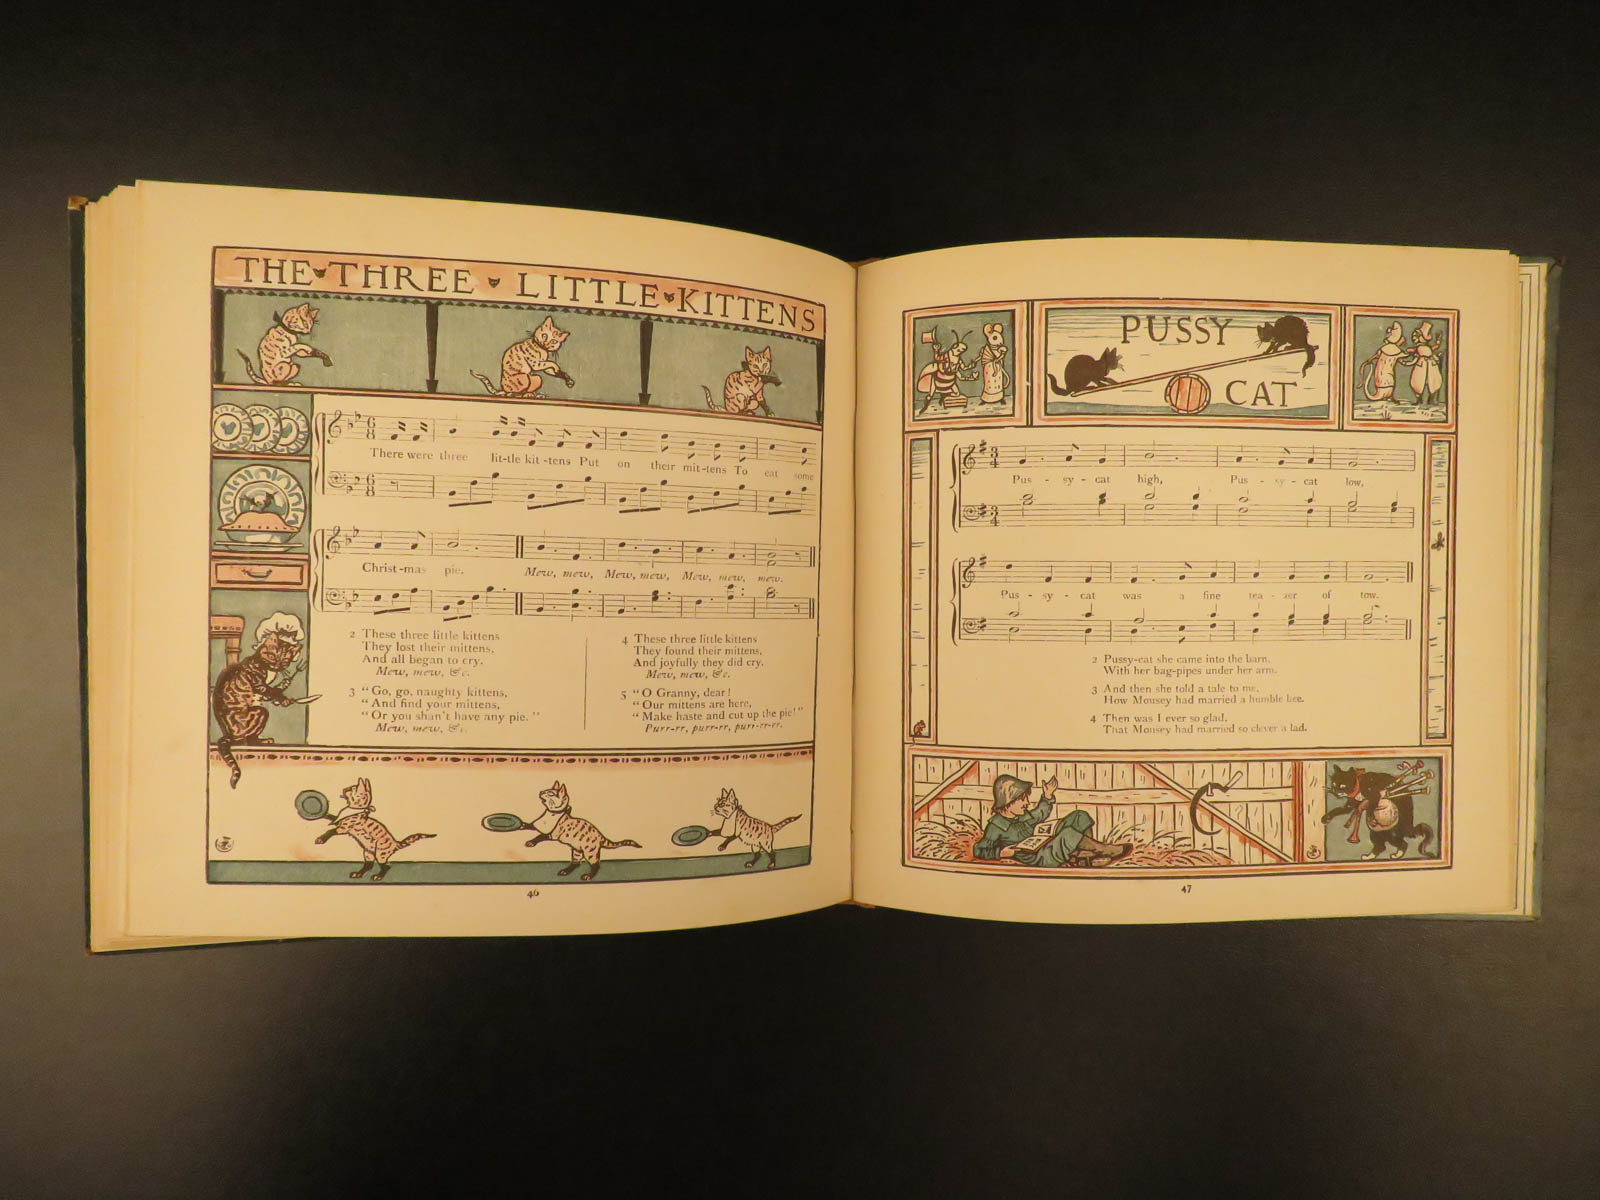 THE THREE LITTLE KITTENS
There were three lit-tle kit-tens Put on their mit-tens To eat some
Christ-mas pie. Mew, mew, Mew, mew, Mew, mew, mew.
2 These three little kittens
They lost their mittens,
And all began to cry.
Mew, mew, &c.
3 "Go, go, naughty kittens,
"And find your mittens,
"Or you shan't have any pie."
Mew, mew, &c.
4 These three little kittens
They found their mittens,
And joyfully they did cry.
Mew, mew, &c.
5 "O Granny, dear!
"Our mittens are here,
"Make haste and cut up the pie!"
Purr-rr, purr-rr, purr-rr-rr.
46
PUSSY
CAT
Pus - sy - cat high, Pus - sy - cat low,
Pus - sy - cat was a fine tea - zer of tow.
2 Pussy-cat she came into the barn,
With her bag-pipes under her arm.
3 And then she told a tale to me,
How Mousey had married a humble bee.
4 Then was I ever so glad,
That Mousey had married so clever a lad.
47